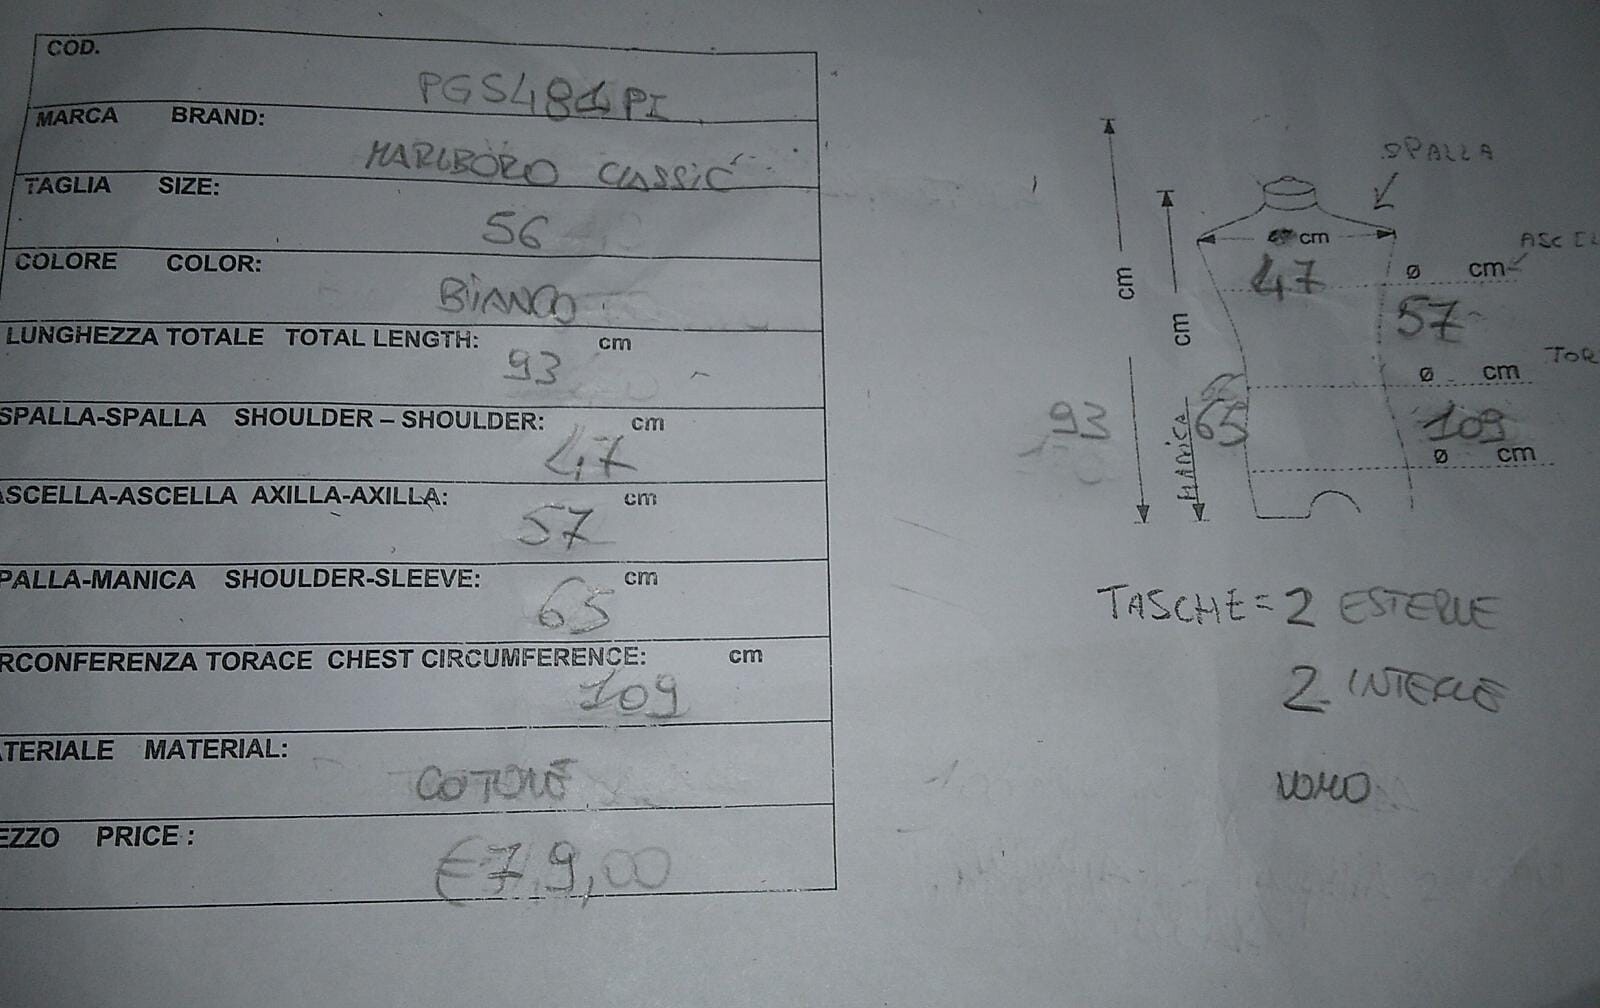 COD.
PGS481PI
MARCA BRAND:
MARLBORO CLASSIC
TAGLIA SIZE:
56
COLORE COLOR:
BIANCO
LUNGHEZZA TOTALE TOTAL LENGTH: cm
93
SPALLA-SPALLA SHOULDER – SHOULDER: cm
47
ASCELLA-ASCELLA AXILLA-AXILLA: cm
57
PALLA-MANICA SHOULDER-SLEEVE: cm
65
RCONFERENZA TORACE CHEST CIRCUMFERENCE: cm
109
ATERIALE MATERIAL:
COTONE
EZZO PRICE :
€79,00
SPALLA
cm
ASCEL
47
ø cm
57
cm
cm
TOR
ø cm
93
MANICA
65
109
ø cm
TASCHE = 2 ESTERNE
2 INTERNE
UOMO